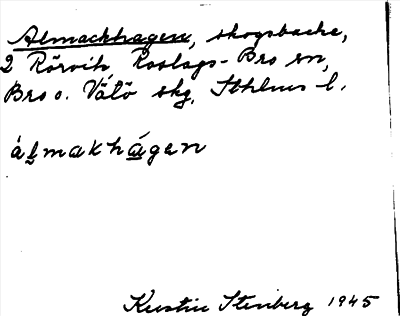 Almackhagen, skogsbacke,
2 Rörvik Roslags-Bro sn,
Bro o. Vätö skg, Sthlms l.
álmakhágen
Kerstin Stenberg 1945